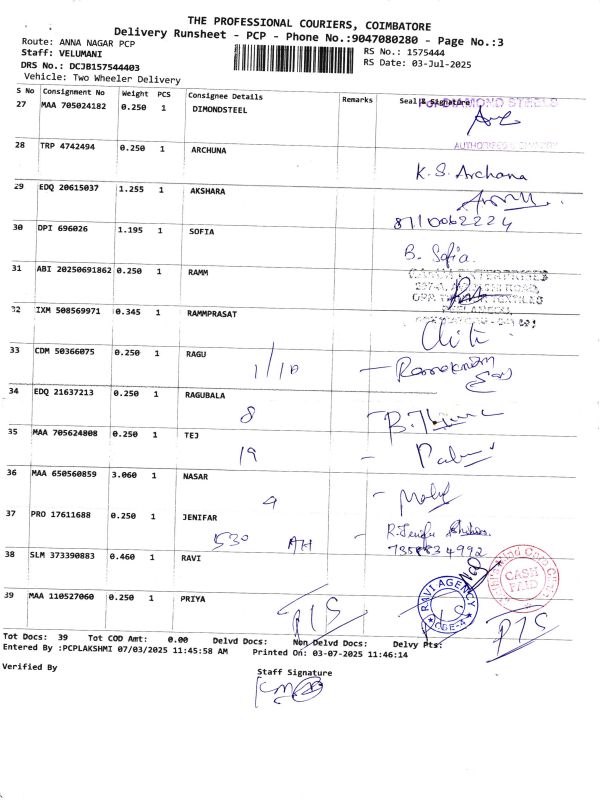 THE PROFESSIONAL COURIERS, COIMBATORE
Delivery Runsheet - PCP - Phone No.:9047080280 - Page No.:3
Route: ANNA NAGAR PCP
RS No.: 1575444
Staff: VELUMANI
RS Date: 03-Jul-2025
DRS No.: DCJB157544403
Vehicle: Two Wheeler Delivery
S No Consignment No Weight PCS Consignee Details Remarks Seal & Signature
27 MAA 705024182 0.250 1 DIMONDSTEEL
28 TRP 4742494 0.250 1 ARCHUNA
K. S. Archana
29 EDQ 20615037 1.255 1 AKSHARA
8710062224
30 DPI 696026 1.195 1 SOFIA
B. Sofia.
31 ABI 20250691862 0.250 1 RAMM
32 IXM 508569971 0.345 1 RAMMPRASAT
33 CDM 50366075 0.250 1 RAGU
1/10
34 EDQ 21637213 0.250 1 RAGUBALA
8
35 MAA 705624808 0.250 1 TEJ
19
36 MAA 650560859 3.060 1 NASAR
9
37 PRO 17611688 0.250 1 JENIFAR
530
7358834992
38 SLM 373390883 0.460 1 RAVI
RAVI AGENCY
CBE-4
CASH PAID
39 MAA 110527060 0.250 1 PRIYA
Tot Docs: 39 Tot COD Amt: 0.00 Delvd Docs: Non Delvd Docs: Delvy Pts:
Entered By :PCPLAKSHMI 07/03/2025 11:45:58 AM Printed On: 03-07-2025 11:46:14
Verified By
Staff Signature